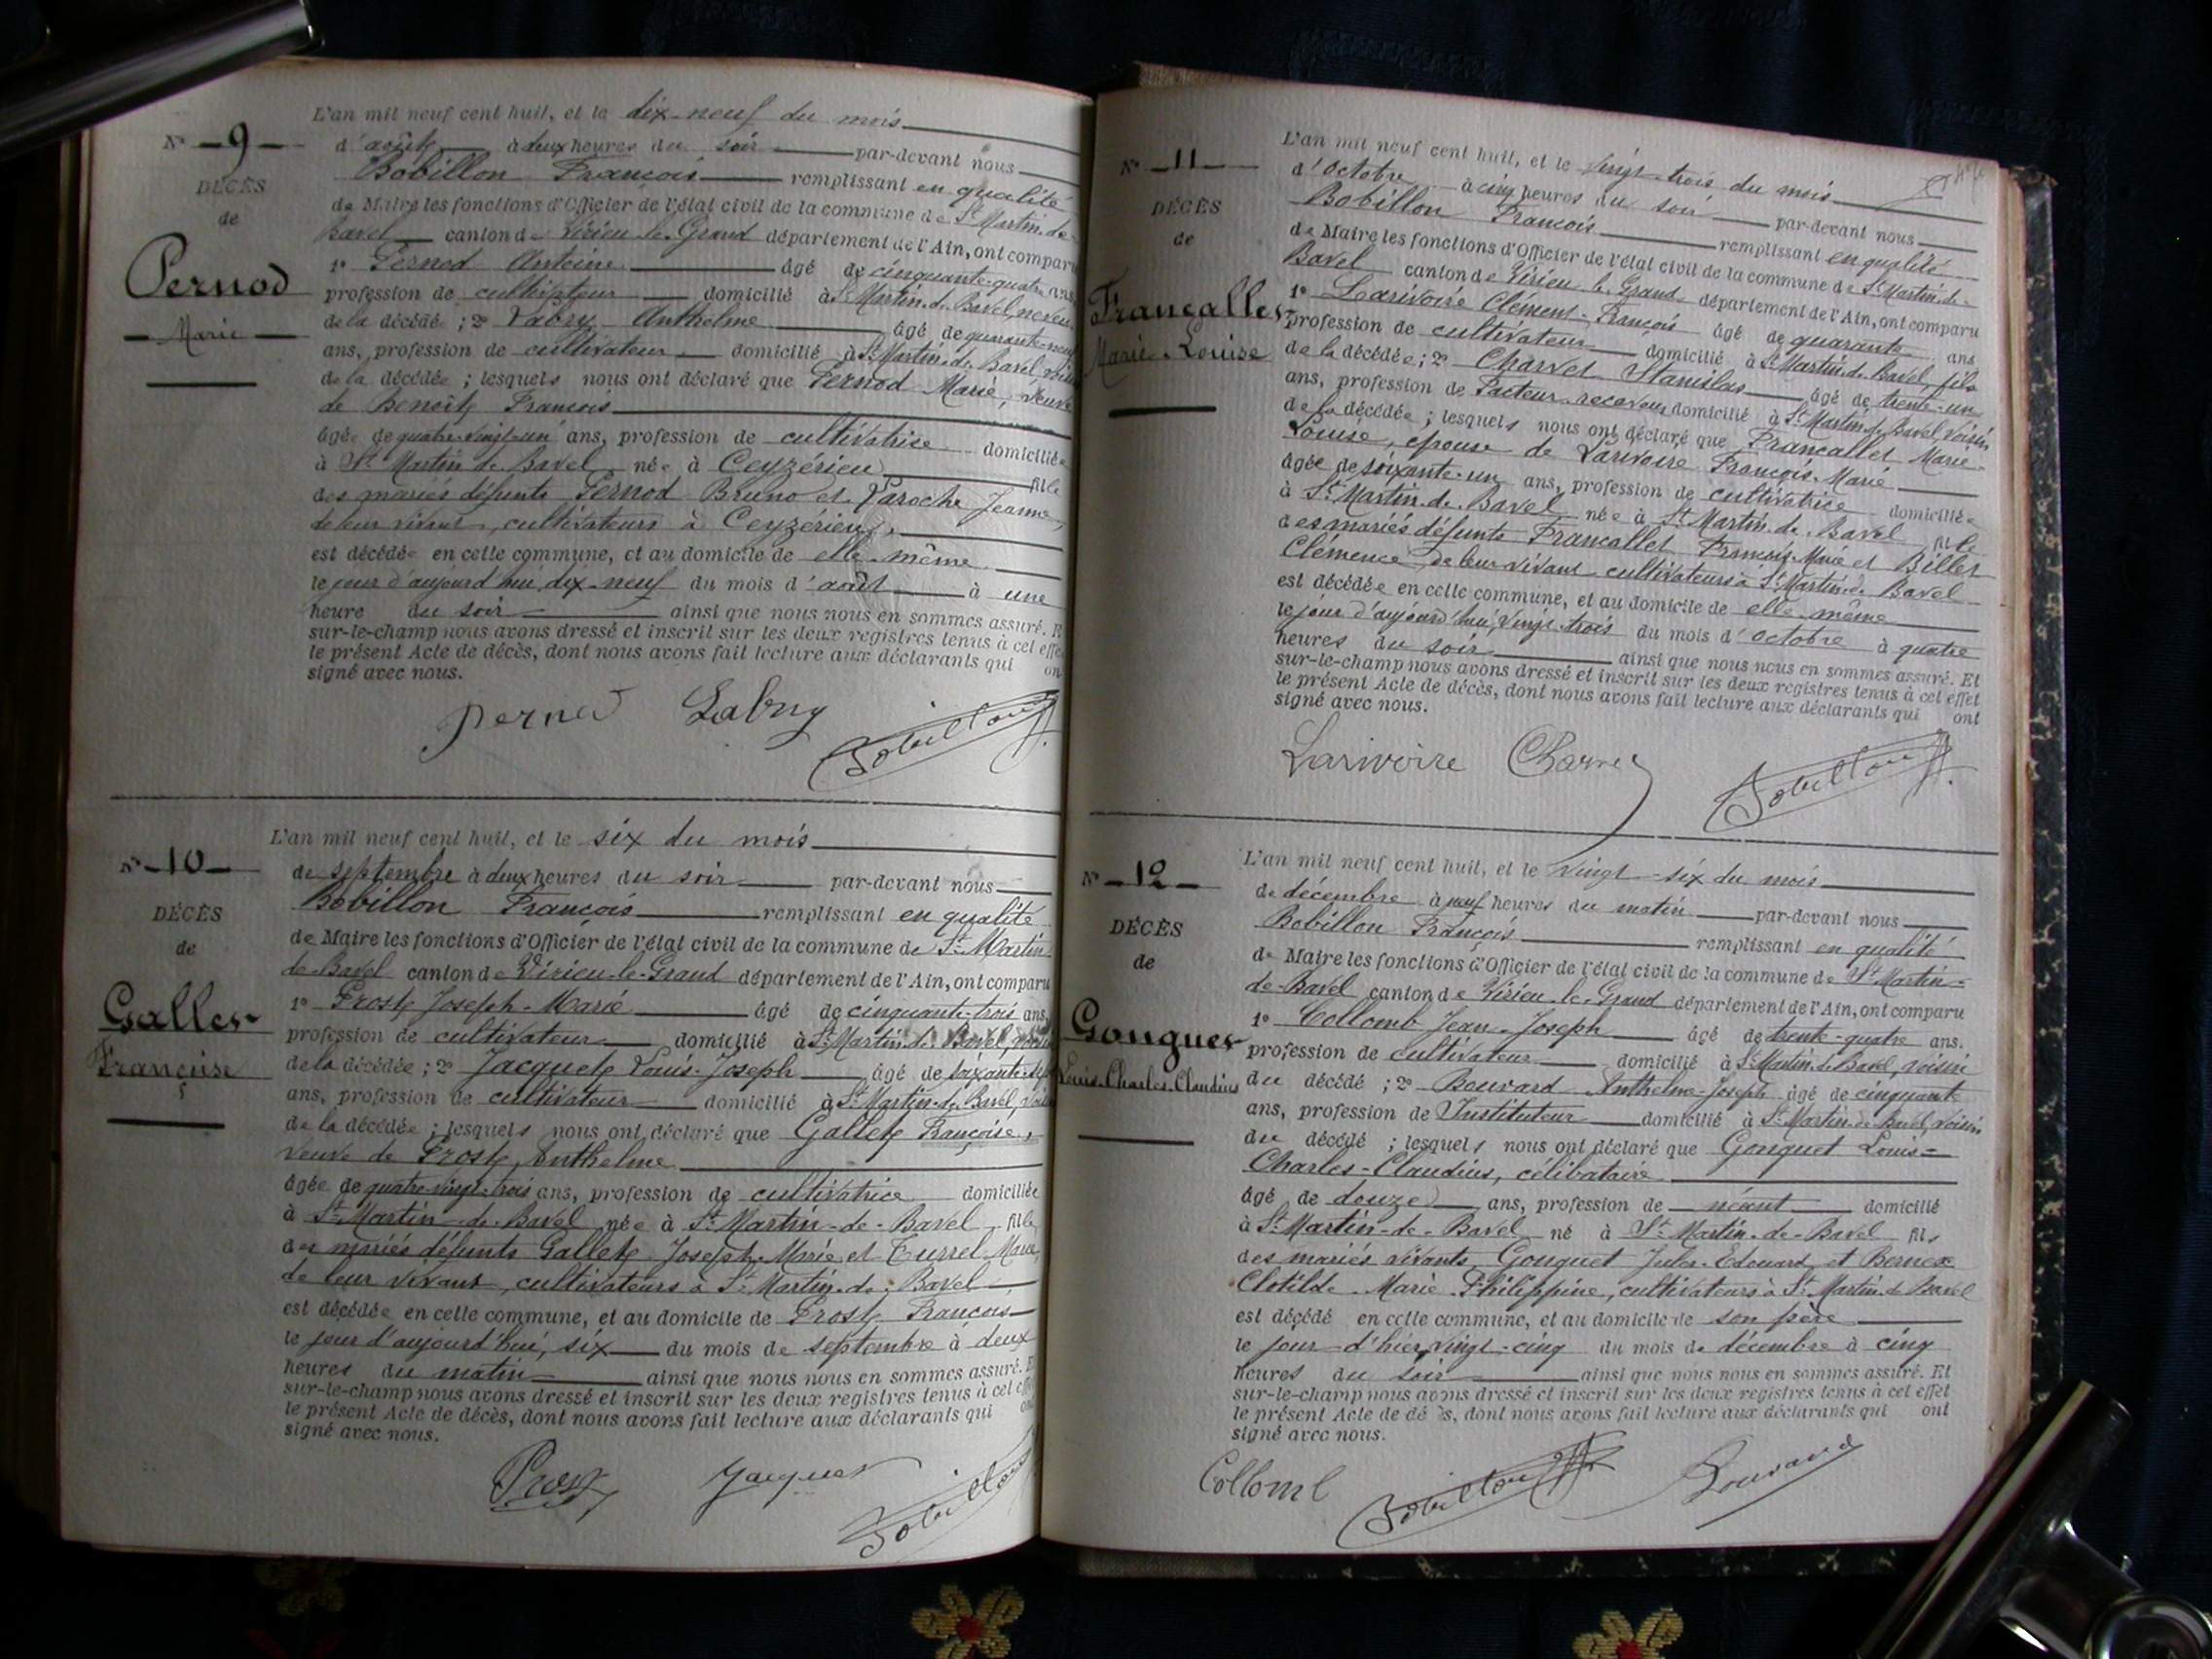 L'an mil neuf cent huit, et le dix-neuf du mois
N° 9
d'août à deux heures du soir par-devant nous
DÉCÈS
Bobillon François remplissant en qualité
de
de Maire les fonctions d'Officier de l'état civil de la commune de St Martin-de-
Bavel canton de Virieu-le-Grand département de l'Ain, ont comparu
Pernod
1° Pernod Antoine âgé de cinquante-quatre ans
profession de cultivateur domicilié à St Martin-de-Bavel, neveu
Marie
de la décédé ; 2° Labry Anthelme âgé de quarante-neuf
ans, profession de cultivateur domicilié à St Martin-de-Bavel voisin
de la décédée ; lesquels nous ont déclaré que Pernod Marie, veuve
de Benoît François
âgée de quatre-vingt-un ans, profession de cultivatrice domiciliée
à St Martin-de-Bavel née à Ceyzérieu fille
des mariés défunts Pernod Bruno et Laroche Jeanne,
de leur vivant, cultivateurs à Ceyzérieu,
est décédée en cette commune, et au domicile de elle-même
le jour d'aujourd'hui, dix-neuf du mois d'août à une
heure du soir ainsi que nous nous en sommes assuré. E
sur-le-champ nous avons dressé et inscrit sur les deux registres tenus à cet effe
le présent Acte de décès, dont nous avons fait lecture aux déclarants qui on
signé avec nous.
Pernod Labry Bobillon
L'an mil neuf cent huit, et le six du mois
N° 10
de septembre à deux heures du soir par-devant nous
DÉCÈS
Bobillon François remplissant en qualité
de
de Maire les fonctions d'Officier de l'état civil de la commune de St Martin
de-Bavel canton de Virieu-le-Grand département de l'Ain, ont comparu
Gallet
1° Prost Joseph-Marie âgé de cinquante-trois ans,
profession de cultivateur domicilié à St Martin-de-Bavel,
Françoise
de la décédée ; 2° Jacquet Louis-Joseph âgé de soixante-
ans, profession de cultivateur domicilié à St Martin-de-Bavel, voisin
de la décédée ; lesquels nous ont déclaré que Gallet Françoise,
veuve de Prost Anthelme
âgée de quatre-vingt-trois ans, profession de cultivatrice domiciliée
à St Martin-de-Bavel née à St Martin-de-Bavel fille
des mariés défunts Gallet Joseph-Marie et Currel Marie,
de leur vivant, cultivateurs à St Martin-de-Bavel
est décédée en cette commune, et au domicile de Prost François
le jour d'aujourd'hui, six du mois de septembre à deux
heures du matin ainsi que nous nous en sommes assuré. E
sur-le-champ nous avons dressé et inscrit sur les deux registres tenus à cet effe
le présent Acte de décès, dont nous avons fait lecture aux déclarants qui on
signé avec nous.
Prost Jacquet Bobillon
L'an mil neuf cent huit, et le vingt-trois du mois
N° 11
d'octobre à cinq heures du soir par-devant nous
DÉCÈS
Bobillon François remplissant en qualité
de
de Maire les fonctions d'Officier de l'état civil de la commune de St Martin-de-
Bavel canton de Virieu-le-Grand département de l'Ain, ont comparu
Francallet
1° Larivoire Clément-François âgé de quarante ans
profession de cultivateur domicilié à St Martin-de-Bavel, fils
Marie-Louise
de la décédée ; 2° Charvet Stanislas âgé de trente-un
ans, profession de Facteur-receveur domicilié à St Martin-de-Bavel, voisin
de la décédée ; lesquels nous ont déclaré que Francallet Marie-
Louise, épouse de Larivoire François-Marie
âgée de soixante-un ans, profession de cultivatrice domiciliée
à St Martin-de-Bavel née à St Martin-de-Bavel fille
des mariés défunts Francallet François-Marie et Billet
Clémence, de leur vivant cultivateurs à St Martin-de-Bavel
est décédée en cette commune, et au domicile de elle-même
le jour d'aujourd'hui, vingt-trois du mois d'octobre à quatre
heures du soir ainsi que nous nous en sommes assuré. Et
sur-le-champ nous avons dressé et inscrit sur les deux registres tenus à cet effet
le présent Acte de décès, dont nous avons fait lecture aux déclarants qui ont
signé avec nous.
Larivoire Charvet Bobillon
L'an mil neuf cent huit, et le vingt-six du mois
N° 12
de décembre à neuf heures du matin par-devant nous
DÉCÈS
Bobillon François remplissant en qualité
de
de Maire les fonctions d'Officier de l'état civil de la commune de St Martin-
de-Bavel canton de Virieu-le-Grand département de l'Ain, ont comparu
Gonguet
1° Collomb Jean-Joseph âgé de trente-quatre ans.
profession de cultivateur domicilié à St Martin-de-Bavel, voisin
Louis-Charles-Claudius
du décédé ; 2° Bouvard Anthelme-Joseph âgé de cinquante
ans, profession de Instituteur domicilié à St Martin-de-Bavel, voisin
du décédé ; lesquels nous ont déclaré que Gonguet Louis-
Charles-Claudius, célibataire
âgé de douze ans, profession de néant domicilié
à St Martin-de-Bavel né à St Martin-de-Bavel fils
des mariés vivants Gonguet Jules-Edouard, et Bernex
Clotilde-Marie-Philippine, cultivateurs à St Martin-de-Bavel
est décédé en cette commune, et au domicile de son père
le jour d'hier, vingt-cinq du mois de décembre à cinq
heures du soir ainsi que nous nous en sommes assuré. Et
sur-le-champ nous avons dressé et inscrit sur les deux registres tenus à cet effet
le présent Acte de décès, dont nous avons fait lecture aux déclarants qui ont
signé avec nous.
Collomb Bobillon Bouvard